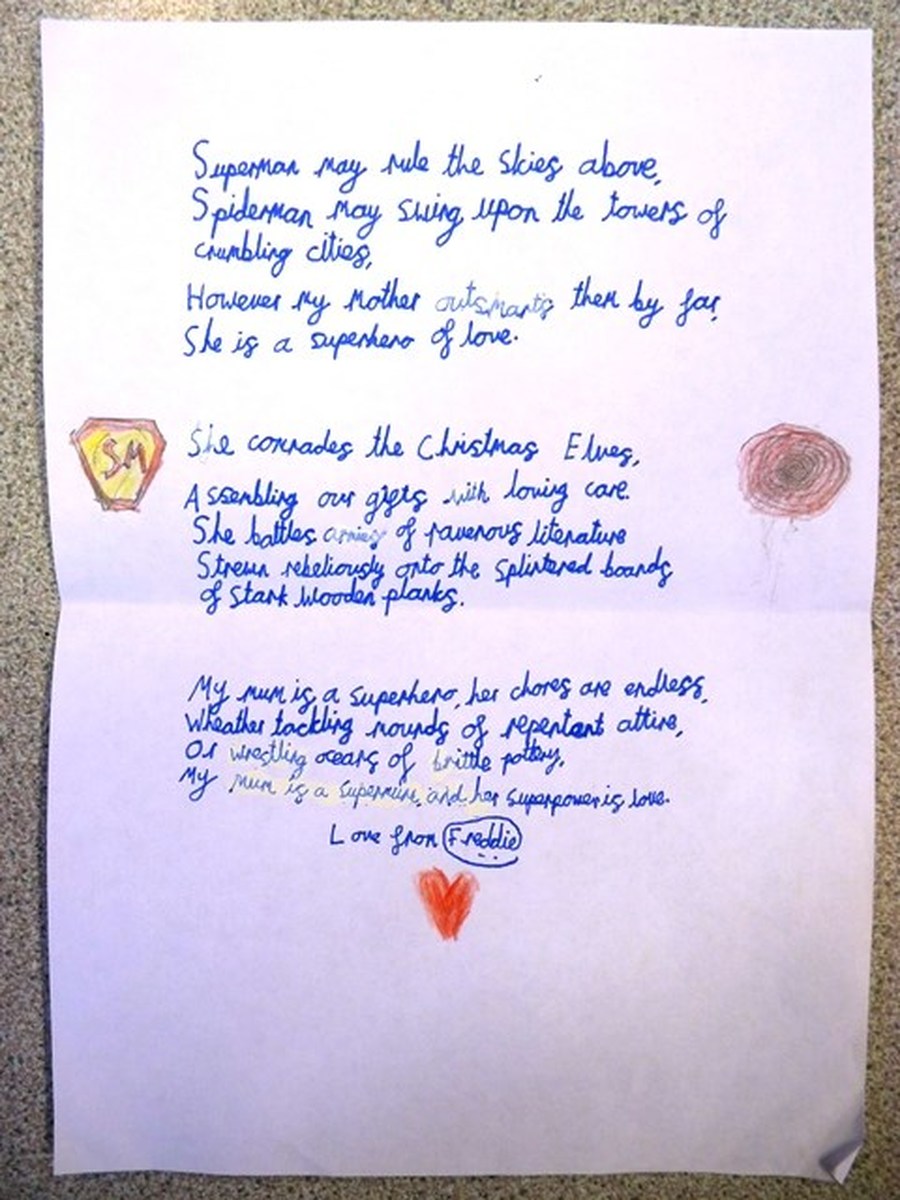 Superman may rule the skies above,
Spiderman may swing upon the towers of
crumbling cities,
However my mother outsmarts them by far,
She is a superhero of love.
SM
She comrades the Christmas Elves,
Assembling our gifts with loving care.
She battles armies of ravenous literature
Strewn rebeliously onto the splintered boards
of stark wooden planks.
My mum is a superhero, her chores are endless,
Wheather tackling mounds of repentant attire,
Or wrestling oceans of brittle pottery,
My mum is a supermum, and her superpower is love.
Love from Freddie